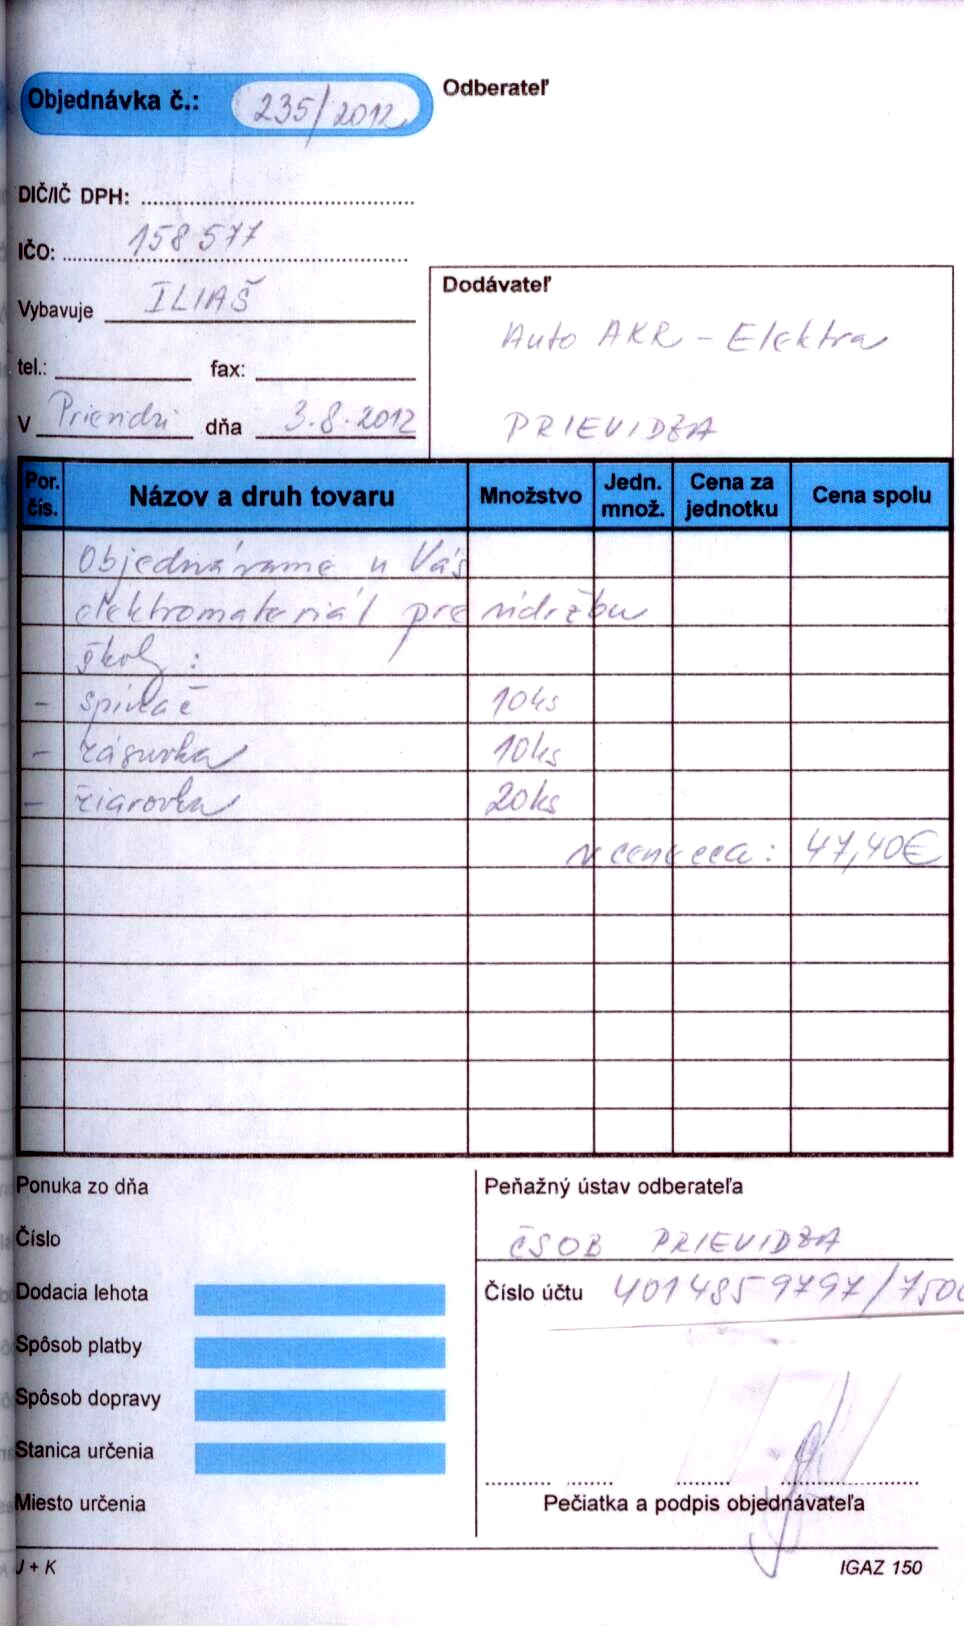 Objednávka č.: 235/2012
Odberateľ
DIČ/IČ DPH:
IČO: 158577
Vybavuje ILIAŠ
tel.: fax:
V Prievidzi dňa 3.8.2012
Dodávateľ
Auto AKR - Elektra
PRIEVIDZA
Por. čís. Názov a druh tovaru Množstvo Jedn. množ. Cena za jednotku Cena spolu
Objednávame u Vás
elektromateriál pre údržbu
školy :
- spínač 10ks
- zásuvka 10ks
- žiarovka 20ks
v cene cca : 47,40€
Ponuka zo dňa
Číslo
Dodacia lehota
Spôsob platby
Spôsob dopravy
Stanica určenia
Miesto určenia
Peňažný ústav odberateľa
ČSOB PRIEVIDZA
Číslo účtu 4014859797/7500
Pečiatka a podpis objednávateľa
J + K
IGAZ 150